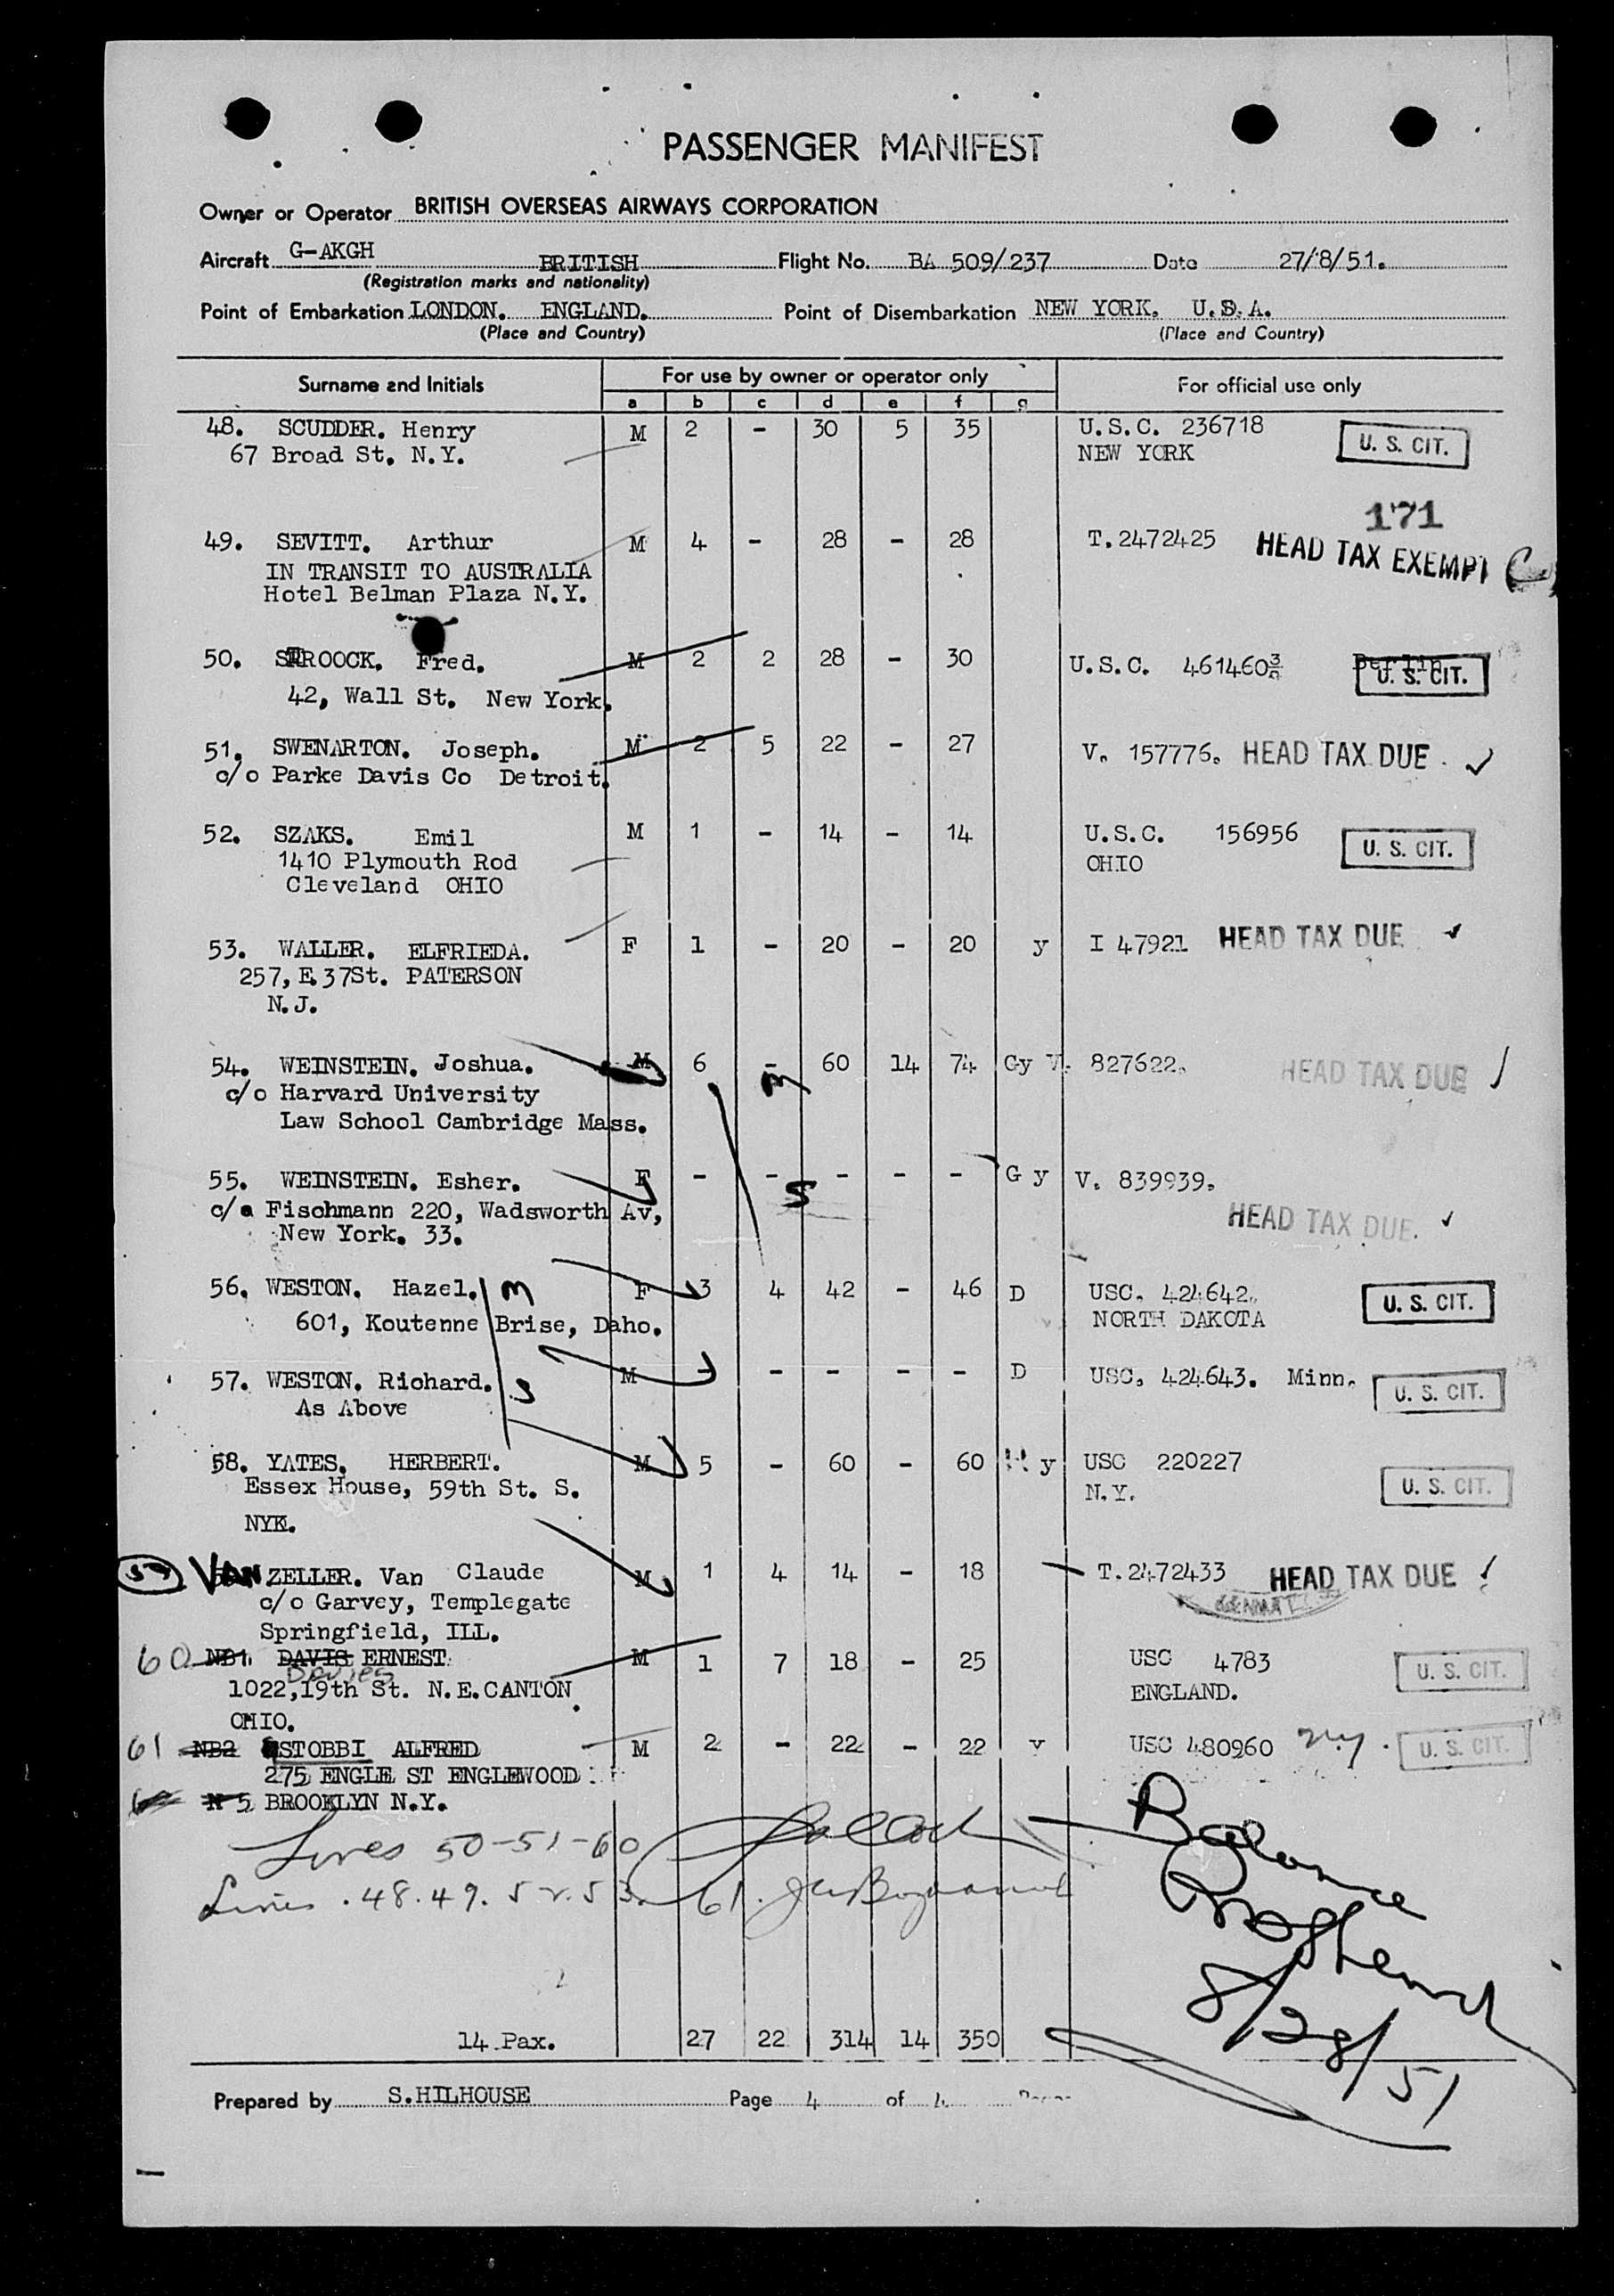 PASSENGER MANIFEST
Owner or Operator BRITISH OVERSEAS AIRWAYS CORPORATION
Aircraft G-AKGH BRITISH Flight No. BA 509/237 Date 27/8/51.
(Registration marks and nationality)
Point of Embarkation LONDON. ENGLAND. Point of Disembarkation NEW YORK, U.S.A.
(Place and Country) (Place and Country)
Surname and Initials For use by owner or operator only For official use only
a b c d e f g
48. SCUDDER. Henry M 2 - 30 5 35 U.S.C. 236718
67 Broad St. N.Y. NEW YORK U. S. CIT.
171
49. SEVITT. Arthur M 4 - 28 - 28 T.2472425 HEAD TAX EXEMPT
IN TRANSIT TO AUSTRALIA
Hotel Belman Plaza N.Y.
50. STROOCK. Fred. M 2 2 28 - 30 U.S.C. 461460 Berlin U. S. CIT.
42, Wall St. New York.
51. SWENARTON. Joseph. M 2 5 22 - 27 V. 157776. HEAD TAX DUE
c/o Parke Davis Co Detroit.
52. SZAKS. Emil M 1 - 14 - 14 U.S.C. 156956
1410 Plymouth Rod OHIO U. S. CIT.
Cleveland OHIO
53. WALLER. ELFRIEDA. F 1 - 20 - 20 y I 47921 HEAD TAX DUE
257, E.37St. PATERSON
N.J.
54. WEINSTEIN. Joshua. M 6 - 60 14 74 Gy V. 827622. HEAD TAX DUE
c/o Harvard University m
Law School Cambridge Mass.
55. WEINSTEIN. Esher. F - - - - - G y V. 839939.
c/o Fischmann 220, Wadsworth Av, S HEAD TAX DUE.
New York. 33.
56. WESTON. Hazel. m F 3 4 42 - 46 D USC. 424642.
601, Koutenne Brise, Daho. NORTH DAKOTA U. S. CIT.
57. WESTON. Richard. S M - - - - - D USC. 424643. Minn. U. S. CIT.
As Above
58. YATES. HERBERT. M 5 - 60 - 60 H y USC 220227
Essex House, 59th St. S. N.Y. U. S. CIT.
NYK.
59 VAN ZELLER. Van Claude M 1 4 14 - 18 T.2472433 HEAD TAX DUE
c/o Garvey, Templegate
Springfield, ILL.
60 NB1. DAVIS ERNEST. M 1 7 18 - 25 USC 4783 U. S. CIT.
Davies
1022,19th St. N.E.CANTON ENGLAND.
OHIO.
61 NB2 STOBBI ALFRED M 2 - 22 - 22 v USC 480960 N.Y. U. S. CIT.
275 ENGLE ST ENGLEWOOD
N 5 BROOKLYN N.Y.
Lines 50-51-60
Lines .48.49.52.53. 61.
Balance
8/28/51
14 Pax. 27 22 314 14 350
Prepared by S.HILHOUSE Page 4 of 4